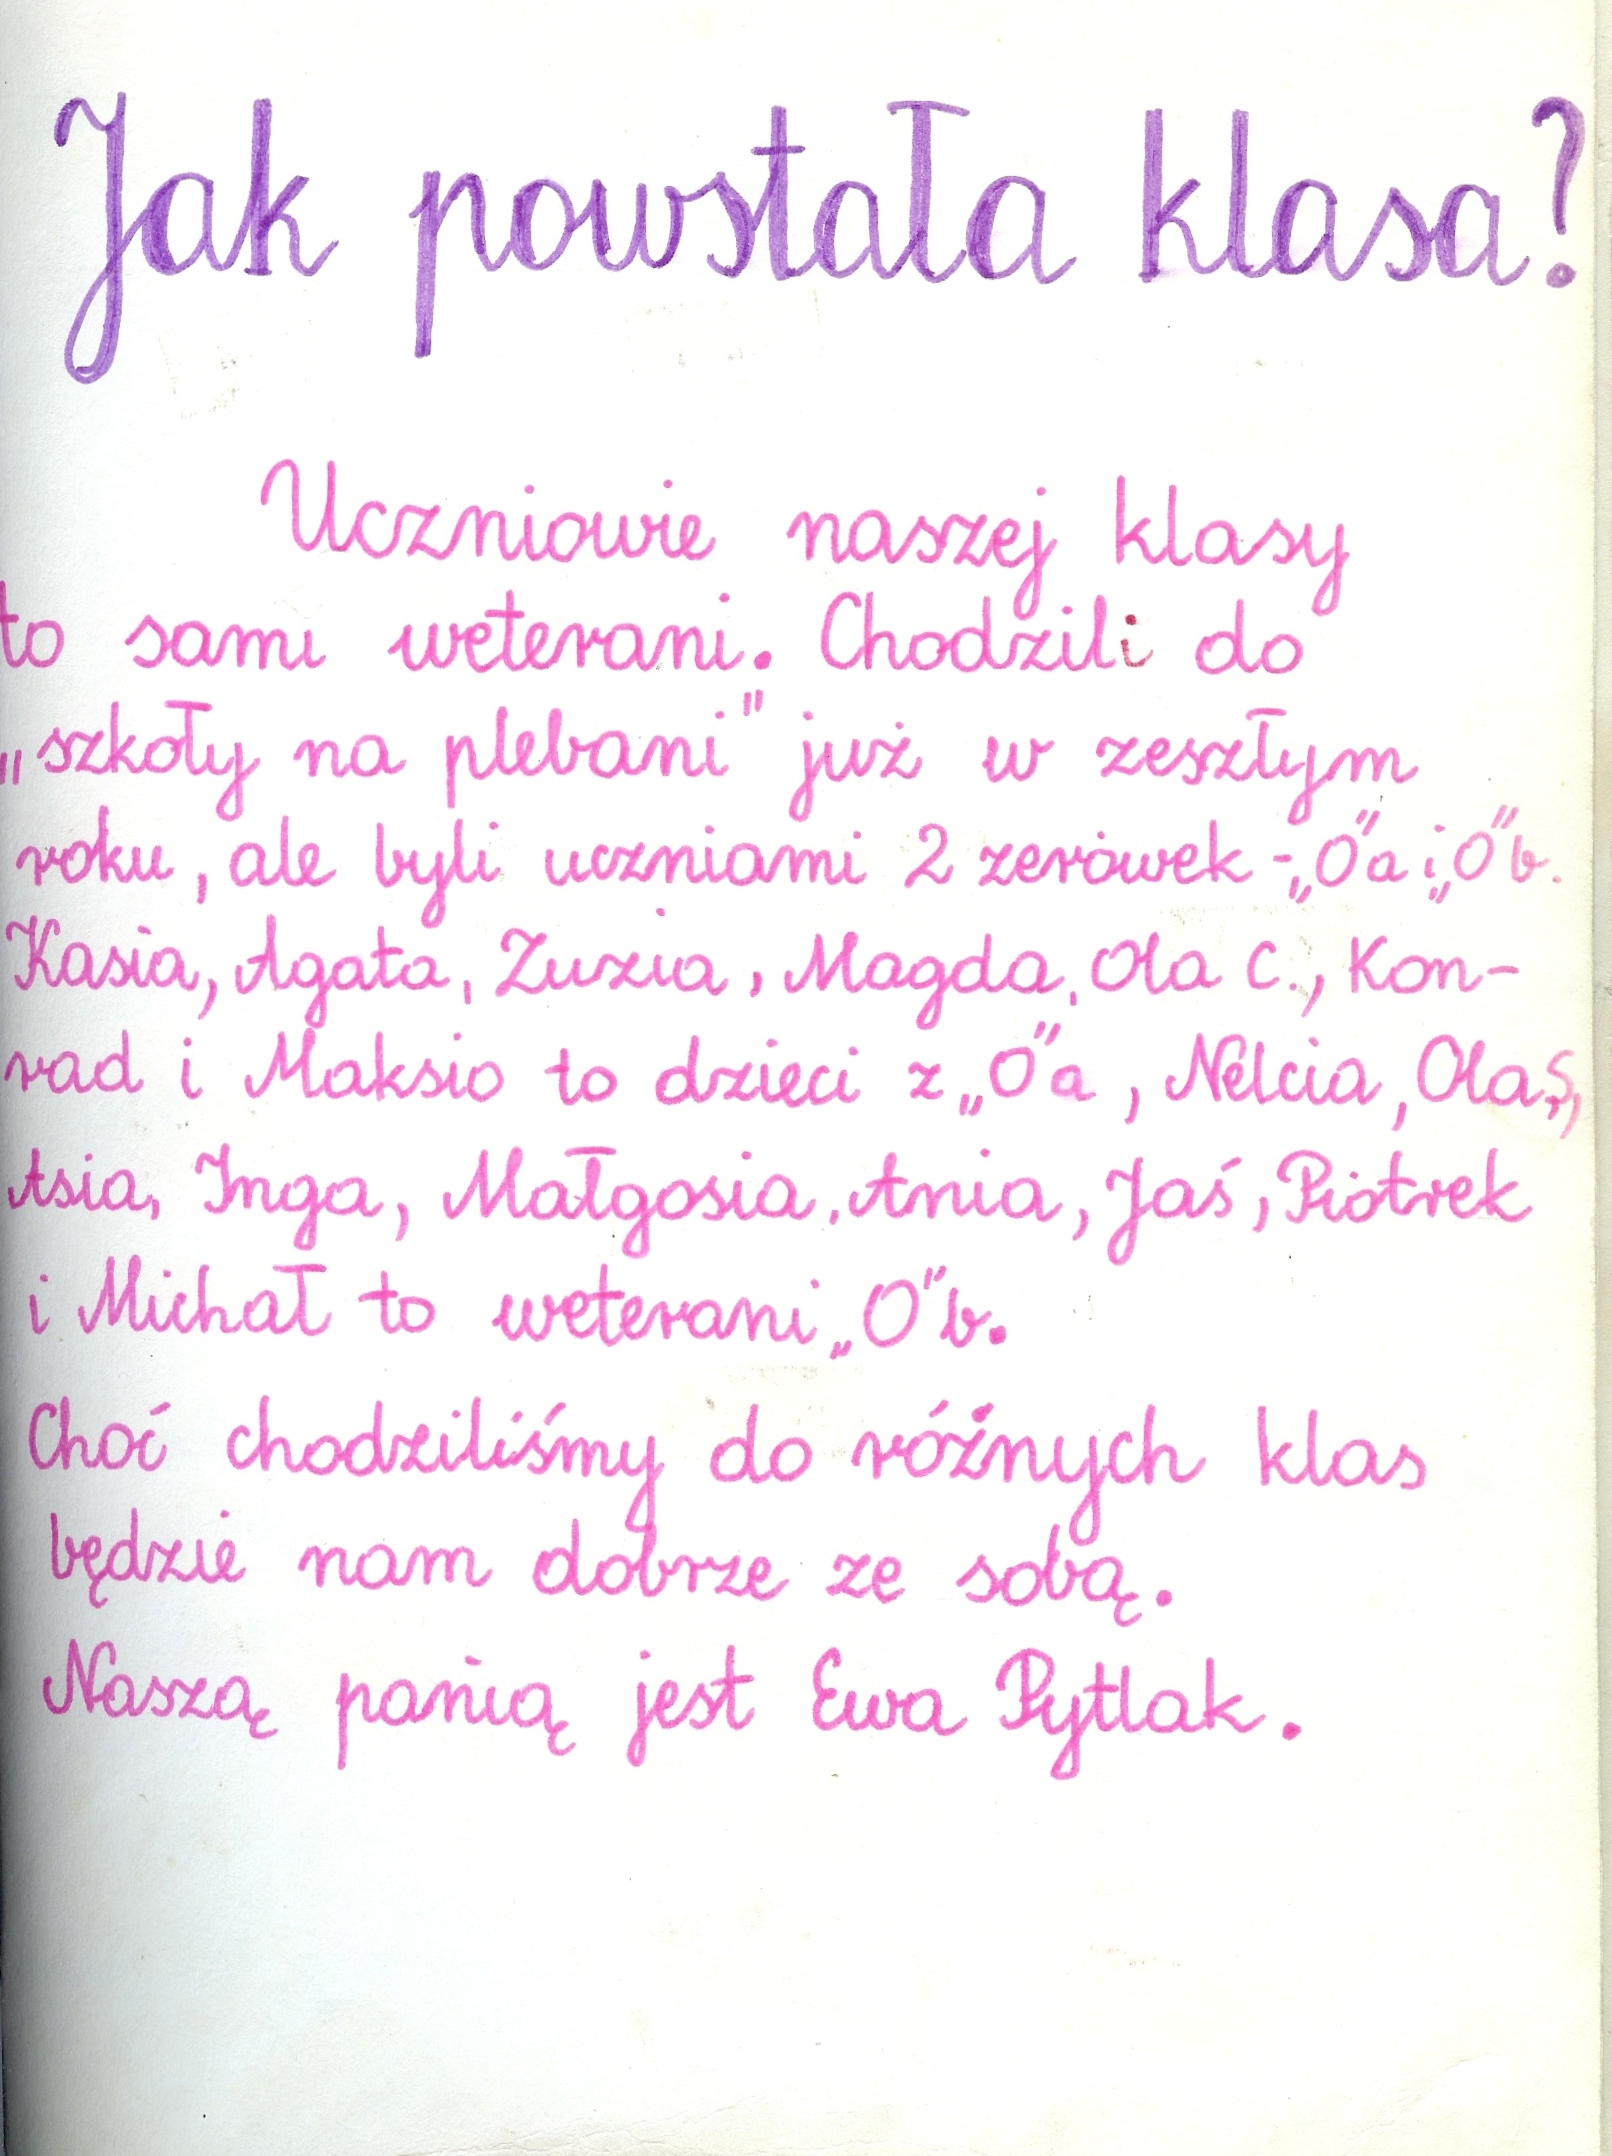 Jak powstała klasa?
Uczniowie naszej klasy
to sami weterani. Chodzili do
„szkoły na plebani" już w zeszłym
roku, ale byli uczniami 2 zerówek - „O"a i „O"b.
Kasia, Agata, Zuzia, Magda, Ola C., Kon-
rad i Maksio to dzieci z „O"a, Nelcia, Ola Ş,
Asia, Inga, Małgosia, Ania, Jaś, Piotrek
i Michał to weterani „O"b.
Choć chodziliśmy do różnych klas
będzie nam dobrze ze sobą.
Naszą panią jest Ewa Pytlak.